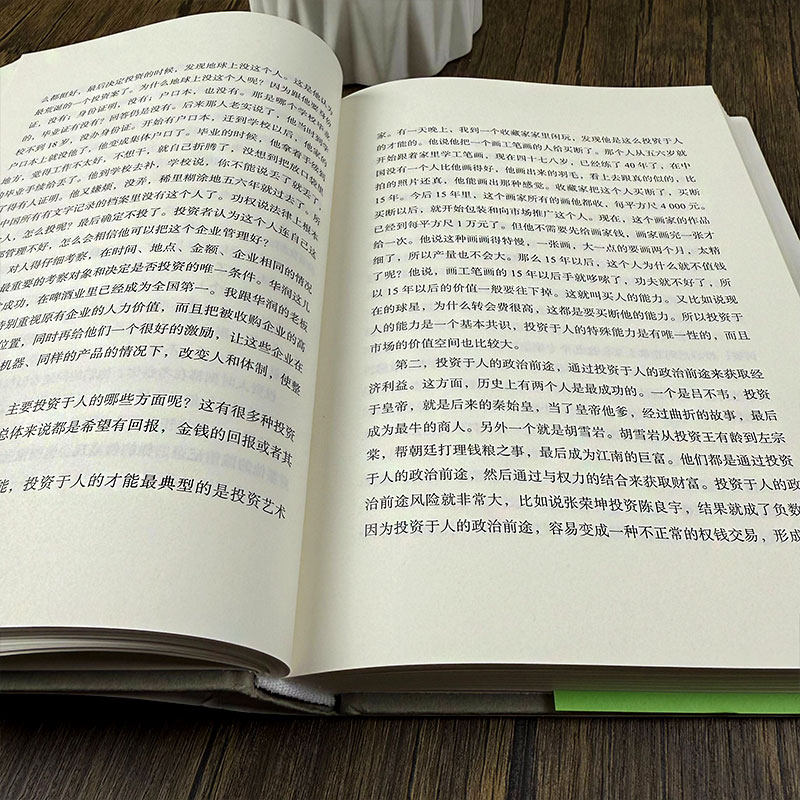 么都挺好，最后决定投资的时候，发现地球上没这个人。这是他认为
最荒诞的一个投资案了。为什么地球上没这个人呢？因为跟他要身份
证，没有；身份证明，没有；户口本，也没有。那是哪个学校毕业
的，毕业证有没有？回答仍是没有。后来那人老实说了，他当时到学
校不到 18 岁，没办身份证。开始有户口本，迁到学校以后，他家的
户口本上就没他了，他变成集体户口了。毕业的时候，他拿着手续到
地方，觉得工作不太好，不想干，就自己折腾了，没想到把放口袋里
的毕业手续给丢了。他到学校去补，学校说，你不能说丢了就丢了，
了得有人证明。他又嫌烦，没弄，稀里糊涂地五六年就过去了。所
中国所有有文字记录的档案里没有这个人了。功权说法律上根本
人，怎么投呢？最后确定不投了。投资者认为这个人连自己这
都管理不好，怎么会相信他可以把这个企业管理好？
对人得仔细考察，在时间、地点、金额、企业相同的情况
最重要的考察对象和决定是否投资的唯一条件。华润这几
常成功，在啤酒业里已经成为全国第一。我跟华润的老板
特别重视原有企业的人力价值，而且把被收购企业的高
位置，同时再给他们一个很好的激励，让这些企业在
机器、同样的产品的情况下，改变人和体制，使整
主要投资于人的哪些方面呢？这有很多种投资
总体来说都是希望有回报，金钱的回报或者其
能，投资于人的才能最典型的是投资艺术
家。有一天晚上，我到一个收藏家家里闲玩，发现他是这么投资于人
的才能的。他说他把一个画工笔画的人给买断了。那个人从五六岁就
开始跟着家里学工笔画，现在四十七八岁，已经练了 40 年了，在中
国没有一个人比他画得好，他画出来的羽毛，看上去跟真的似的，比
拍的照片还真，他能画出那种感觉。收藏家把这个人买断了，买断
15 年。今后 15 年里，这个画家所有的画他都收，每平方尺 4 000 元。
买断以后，就开始包装和向市场推广这个人。现在，这个画家的作品
已经到每平方尺 1 万元了。但他不需要先给画家钱，画家画完一张才
给一次。他说这种画画得特慢，一张画，大一点的要画两个月，太精
细了，所以产量也不会大。那么 15 年以后，这个人为什么就不值钱
了呢？他说，画工笔画的 15 年以后手就哆嗦了，功夫就不好了，所
以 15 年以后的价值一般要往下掉。这就叫买人的能力。又比如说现
在的球星，为什么转会费很高，这都是要买断他的能力。所以投资于
人的能力是一个基本共识，投资于人的特殊能力是有唯一性的，而且
市场的价值空间也比较大。
第二，投资于人的政治前途，通过投资于人的政治前途来获取经
济利益。这方面，历史上有两个人是最成功的。一个是吕不韦，投资
于皇帝，就是后来的秦始皇，当了皇帝他爹，经过曲折的故事，最后
成为最牛的商人。另外一个就是胡雪岩。胡雪岩从投资王有龄到左宗
棠，帮朝廷打理钱粮之事，最后成为江南的巨富。他们都是通过投资
于人的政治前途，然后通过与权力的结合来获取财富。投资于人的政
治前途风险就非常大，比如说张荣坤投资陈良宇，结果就成了负数
因为投资于人的政治前途，容易变成一种不正常的权钱交易，形成